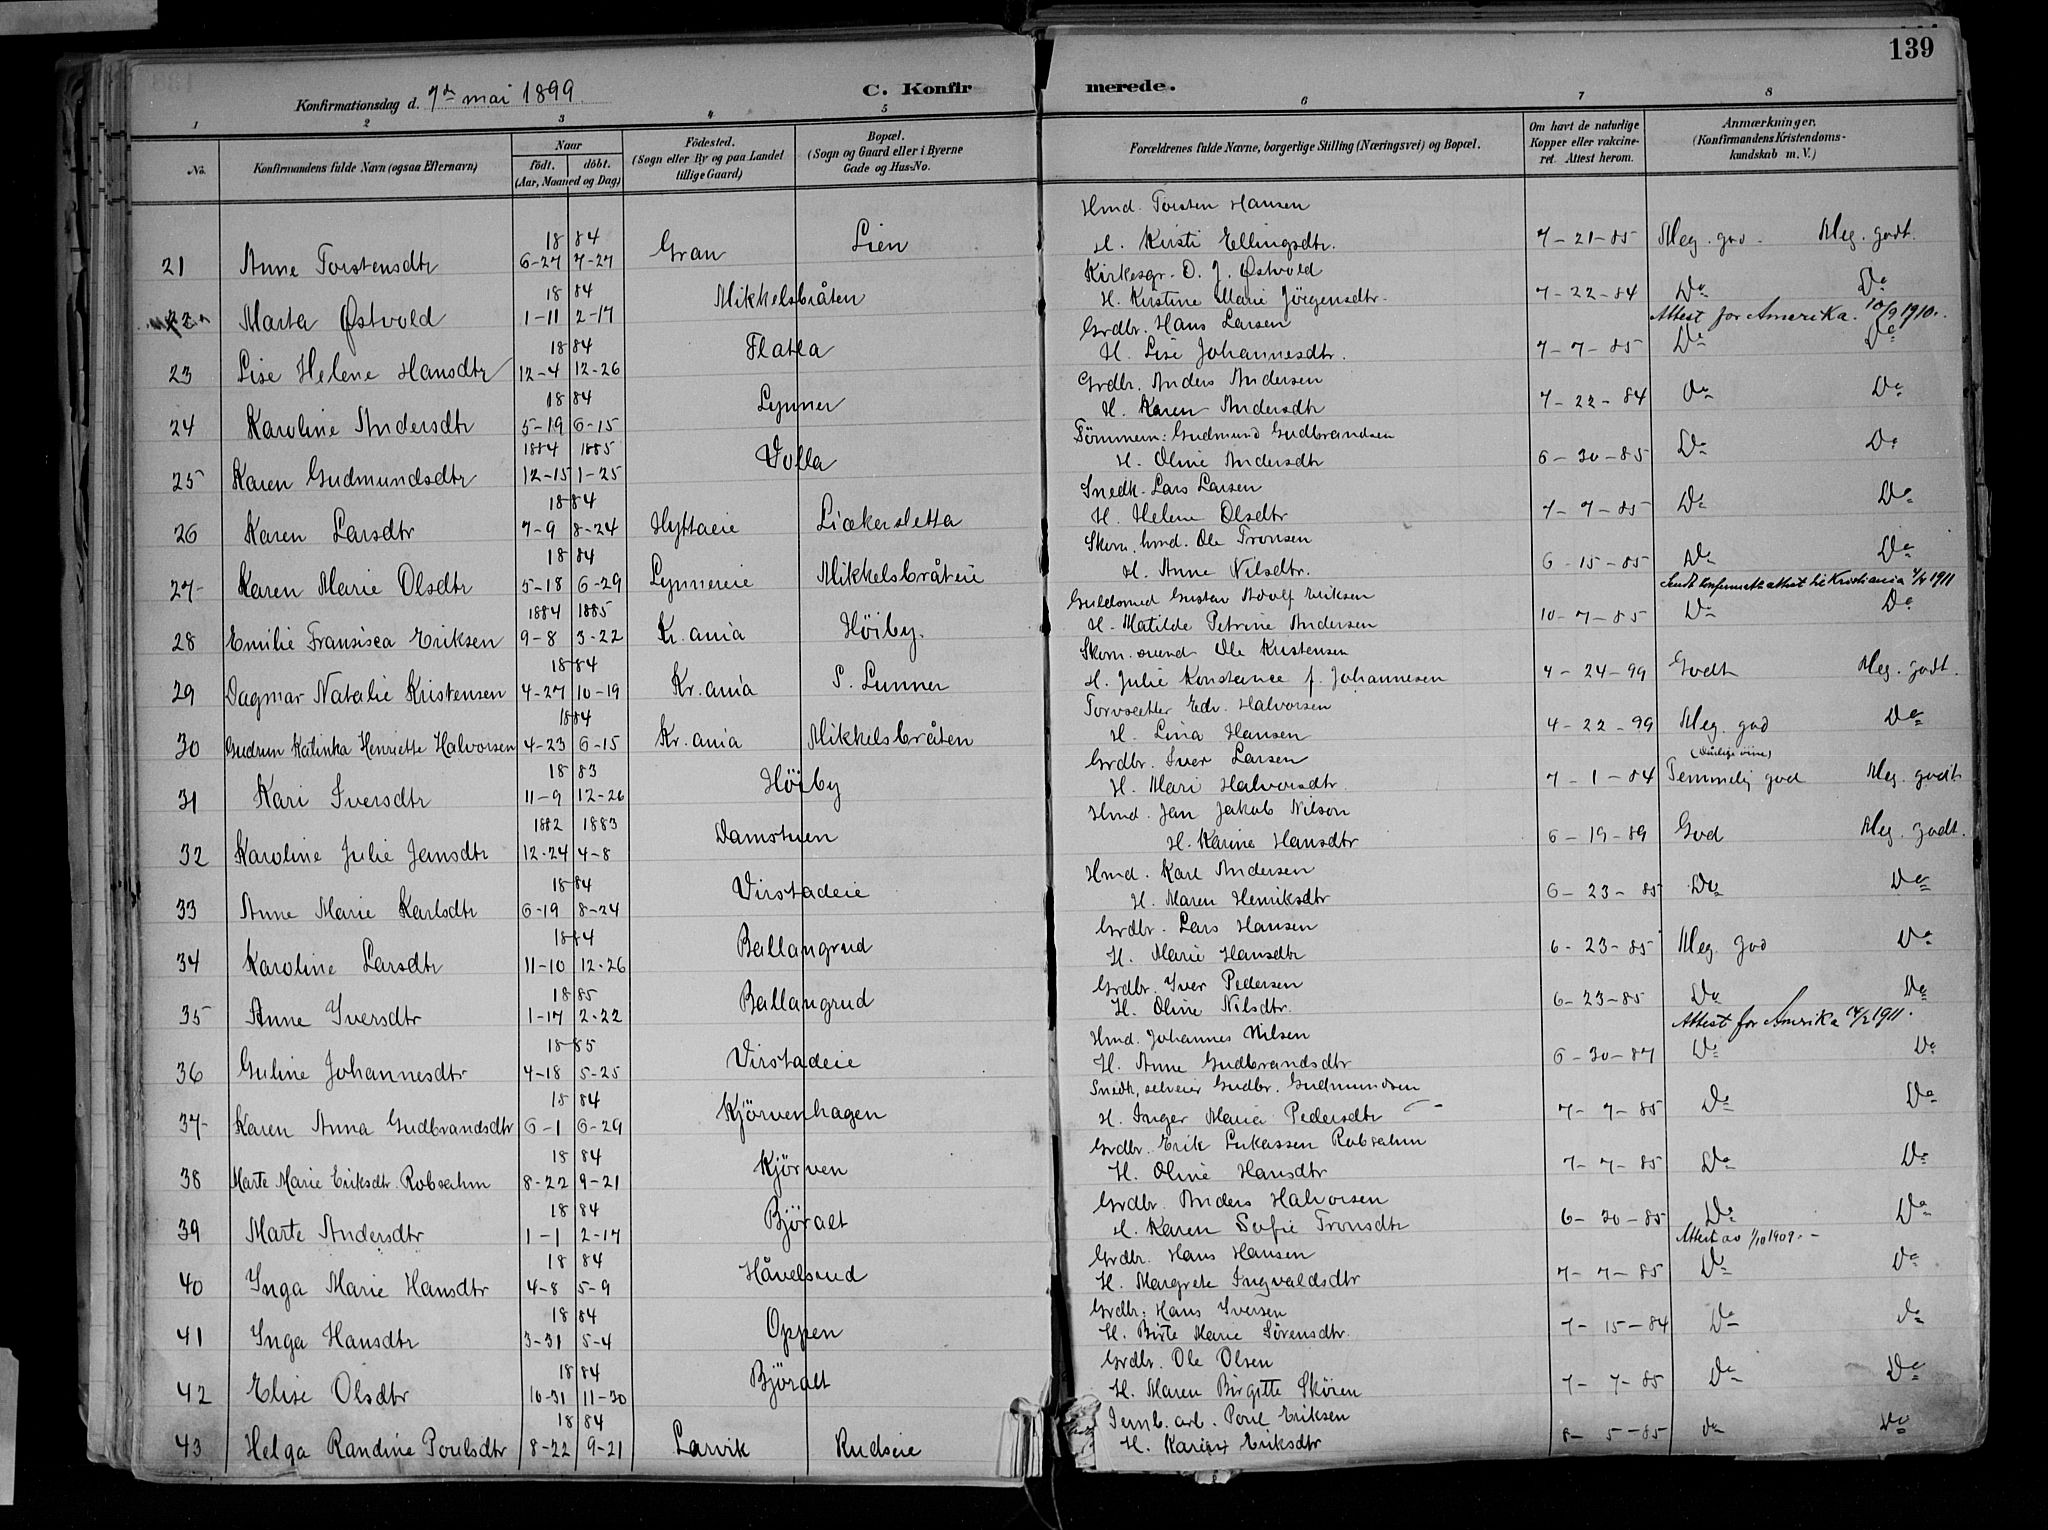 139
Konfirmationsdag d. 7de mai 1899. C. Konfirmerede.
1 2 3 4 5 6 7 8
No. Konfirmandens fulde Navn (ogsaa Efternavn) Naar født. døbt. (Aar, Maaned og Dag) Fødested. (Sogn eller By og paa Landet tillige Gaard) Bopæl. (Sogn og Gaard eller i Byerne Gade og Hus-No. Forældrenes fulde Navne, borgerlige Stilling (Næringsvei) og Bopæl. Om havt de naturlige Kopper eller vaccineret. Attest herom. Anmærkninger. (Konfirmandens Kristendomskundskab m. V.)
1884 Hmd. Torsten Hansen
21 Anne Torstensdtr 6-27 7-27 Gran Lien H. Kirsti Ellingsdtr. 7-21-85 Meg. god. Meg. godt.
1884 Kirkesgr. O. J. Østvold
22 Marta Østvold 1-11 2-17 Mikkelsbråten H. Kirstine Marie Jörgensdtr. 7-22-84 Do Do
Attest for Amerika. 10/9 1910.
1884 Grdbr. Hans Larsen
23 Lise Helene Hansdtr 12-4 12-26 Flatla H. Lise Johannesdtr. 7-7-85 Do Do
1884 Grdbr. Anders Andersen
24 Karoline Andersdtr 5-19 6-15 Lynner H. Karen Andersdtr 7-22-84 Do Do
1884 1885 Tömmerm: Gudmund Gudbrandsen
25 Karen Gudmundsdtr 12-15 1-25 Volla H. Oline Andersdtr 6-30-85 Do Do
1884 Snedk. Lars Larsen
26 Karen Larsdtr 7-9 8-24 Hyttaeie Liækersletta H. Helene Olsdtr 7-7-85 Do Do
1884 Skom. hmd. Ole Tronsen
27 Karen Marie Olsdtr 5-18 6-29 Lynnereie Mikkelsbråteie H. Anne Nilsdtr. 6-15-85 Do Do
Sendt konfirmatt. attest til Kristiania 4/4 1911
1884 1885 Guldsmed Gustav Adolf Eriksen
28 Emilie Fransisca Eriksen 9-8 3-22 Kr.ania Höiby. H. Matilde Petrine Andersen 10-7-85 Do Do
1884 Skom. svend Ole Kristensen
29 Dagmar Natalie Kristensen 4-27 10-19 Kr.ania S. Lunner H. Julie Konstance f. Johannesen 4-24-99 Godt Meg. godt.
1884 Torvsætter Edv. Halvorsen
30 Gudrun Katinka Henriette Halvorsen 4-23 6-15 Kr.ania Mikkelsbråten H. Lina Hansen 4-22-99 Meg. god Do
1883 Grdbr. Iver Larsen
31 Kari Iversdtr 11-9 12-26 Höiby H. Mari Halvorsdtr. 7-1-84 Temmelig god Meg. godt
1882 1883 Hmd. Jan Jakob Nilson
32 Karoline Julie Jansdtr 12-24 4-8 Damstuen H. Karine Hansdtr 6-19-89 God Meg. godt.
1884 Hmd. Karl Andersen
33 Anne Marie Karlsdtr 6-19 8-24 Virstadeie H. Maren Henriksdtr 6-23-85 Do Do
1884 Grdbr. Lars Hansen
34 Karoline Larsdtr 11-10 12-26 Ballangrud H. Marie Hansdtr 6-23-85 Meg. god Do
1885 Grdbr. Iver Pedersen
35 Anne Iversdtr 1-17 2-22 Ballangrud H. Oline Nilsdtr. 6-23-85 Do Do
Attest for Amerika 14/2 1911.
1885 Hmd. Johannes Nilsen
36 Guline Johannesdtr 4-18 5-25 Virstadeie H. Anne Gudbrandsdtr 6-30-87 Do Do
1884 Snedk, selveier Gudbr. Gudmundsen
37 Karen Anna Gudbrandsdtr 6-1 6-29 Kjörvenhagen H. Inger Maria Pedersdtr 7-7-85 Do Do
1884 Grdbr. Erik Lukassen Robsahm
38 Marte Marie Eriksdtr. Robsahm 8-22 9-21 Kjörven H. Oline Hansdtr 7-7-85 Do Do
1884 Grdbr. Anders Halvorsen
39 Marte Andersdtr 1-1 2-17 Björalt H. Karen Sofie Tronsdtr 6-30-85 Do Do
Attest av 1/10 1909.
1884 Grdbr. Hans Hansen
40 Inga Marie Hansdtr 4-8 5-9 Håvelsrud H. Margrete Ingvaldsdtr 7-7-85 Do Do
1884 Grdbr. Hans Iversen
41 Inga Hansdtr 3-31 5-4 Oppen H. Birte Marie Sörensdtr. 7-15-84 Do Do
1884 Grdbr. Ole Olsen
42 Elise Olsdtr 10-31 11-30 Björalt H. Maren Birgitte Skören 7-7-85 Do Do
1884 Jernb. arb. Poul Eriksen
43 Helga Randine Poulsdtr 8-22 9-21 Larvik Rudseie H. Karen Eriksdtr 8-5-85 Do Do